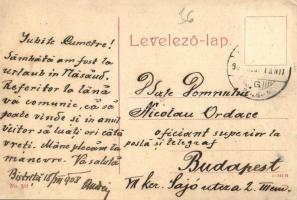 56
Levelező-lap.
Iubite Cumetre!
Sâmbătă am fost la
urlaub in Năsăud.
Referitor la lână
vă comunic, că să
poate vinde și in anul
viitor să luați ori câtă
vreți. Mâne plecăm la
manevre. Vă salută
Bistrița 15/VIII 908
Dsale Domnului
Nicolau Ordace
oficiant superior la
poștă si telegraf
Budapest
VII ker. Sajó utcza 2. III em.